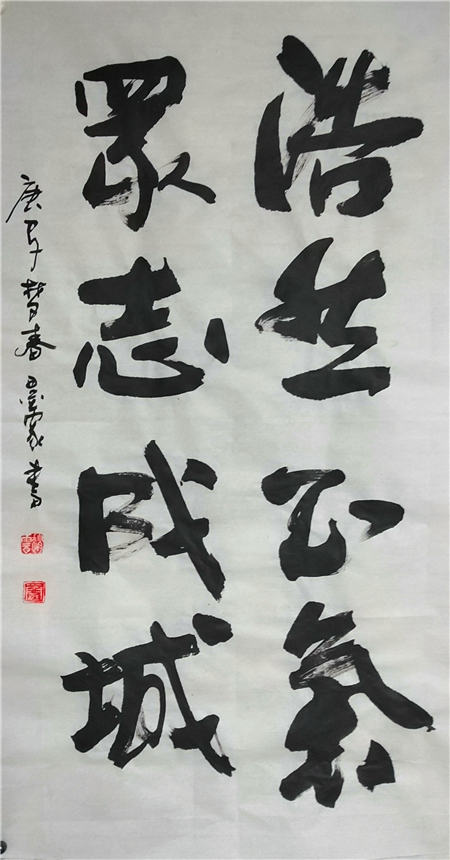 浩然正氣
眾志成城
庚子春書